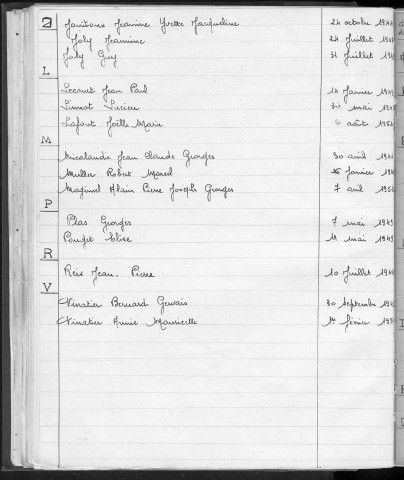 J Jeanine Yvette Jacqueline 24 octobre 194
Joly Jeannine 24 Juillet 194
Joly Guy 31 Juillet 194
L
Lecourt Jean Paul 14 Janvier 194
Lucien 30 mai
Lafont Joëlle Marie 6 août 195
M
Micalaudi Jean Claude Georges 30 avril 194
Muller Robert Marcel février 194
Maginel Alain Pierre Joseph Georges 7 avril 195
P
Plas Georges 7 mai 1949
Pouget Elise 11 mai 1949
R
Reis Jean. Pierre 10 Juillet 194
V
Vinatier Bernard Gervais 30 Septembre 194
Vinatier Annie Mauricette 1er février 195